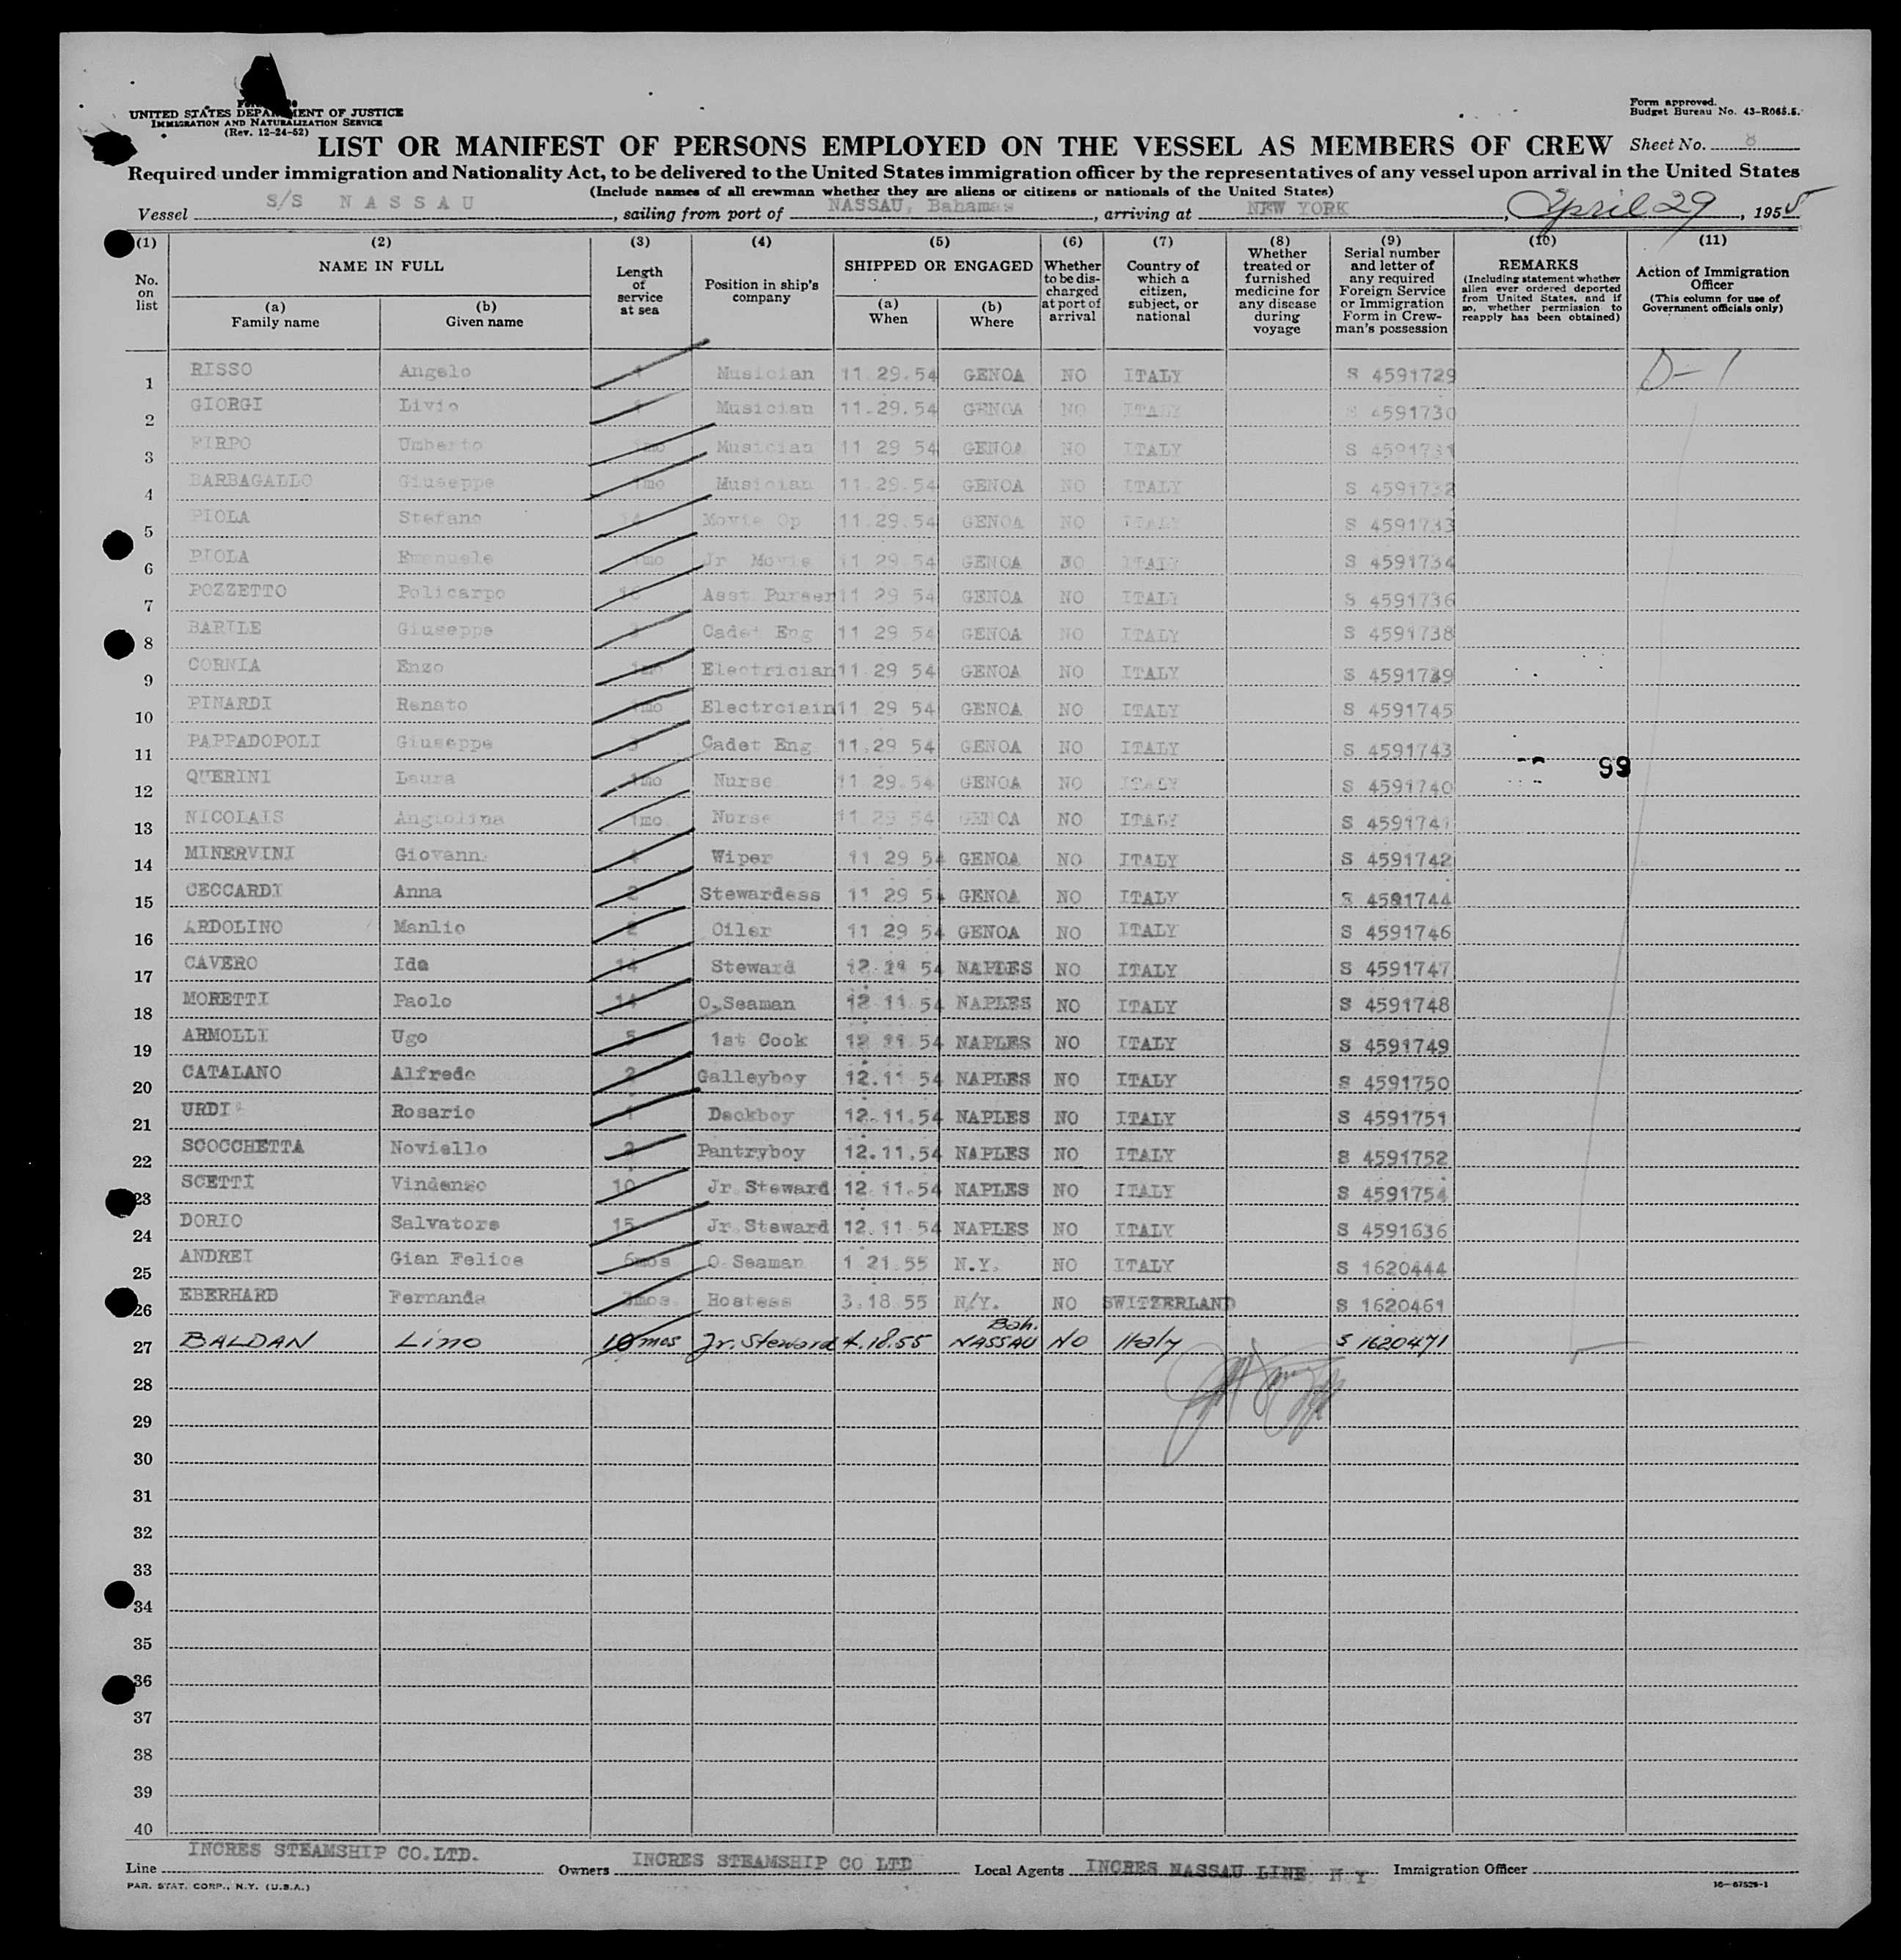 Form approved.
Budget Bureau No. 43-R065.5.
UNITED STATES DEPARTMENT OF JUSTICE
IMMIGRATION AND NATURALIZATION SERVICE
(Rev. 12-24-52)
LIST OR MANIFEST OF PERSONS EMPLOYED ON THE VESSEL AS MEMBERS OF CREW Sheet No. 8
Required under immigration and Nationality Act, to be delivered to the United States immigration officer by the representatives of any vessel upon arrival in the United States
(Include names of all crewman whether they are aliens or citizens or nationals of the United States)
Vessel S/S NASSAU, sailing from port of NASSAU, Bahamas, arriving at NEW YORK, April 29, 1955
(1) (2) (3) (4) (5) (6) (7) (8) (9) (10) (11)
No. on list
NAME IN FULL
(a) Family name
(b) Given name
Length of service at sea
Position in ship's company
SHIPPED OR ENGAGED
(a) When
(b) Where
Whether to be discharged at port of arrival
Country of which a citizen, subject, or national
Whether treated or furnished medicine for any disease during voyage
Serial number and letter of any required Foreign Service or Immigration Form in Crewman's possession
REMARKS
(Including statement whether alien ever ordered deported from United States, and if so, whether permission to reapply has been obtained)
Action of Immigration Officer
(This column for use of Government officials only)
1 RISSO Angelo Musician 11.29.54 GENOA NO ITALY S 4591729 D-1
2 GIORGI Livio Musician 11.29.54 GENOA NO ITALY S 4591730
3 FIRPO Umberto 1mo Musician 11 29 54 GENOA NO ITALY S 4591731
4 BARBAGALLO Giuseppe 1mo Musician 11.29.54 GENOA NO ITALY S 4591732
5 PIOLA Stefano 14 Movie Op 11.29.54 GENOA NO ITALY S 4591733
6 PIOLA Emanuele 1mo Jr Movie 11 29 54 GENOA NO ITALY S 4591734
7 POZZETTO Policarpo Asst Purser 11 29 54 GENOA NO ITALY S 4591736
8 BARILE Giuseppe 3 Cadet Eng 11 29 54 GENOA NO ITALY S 4591738
9 CORNIA Enzo 1mo Electrician 11 29 54 GENOA NO ITALY S 4591739
10 PINARDI Renato 1mo Electrciain 11 29 54 GENOA NO ITALY S 4591745
11 PAPPADOPOLI Giuseppe 3 Cadet Eng 11,29 54 GENOA NO ITALY S 4591743
12 QUERINI Laura 1mo Nurse 11 29.54 GENOA NO ITALY S 4591740 99
13 NICOLAIS Angiolina 1mo. Nurse 11 29 54 GENOA NO ITALY S 4591741
14 MINERVINI Giovanni 4 Wiper 11 29 54 GENOA NO ITALY S 4591742
15 CECCARDI Anna 2 Stewardess 11 29 54 GENOA NO ITALY S 4591744
16 ARDOLINO Manlio 2 Oiler 11 29 54 GENOA NO ITALY S 4591746
17 CAVERO Ida 14 Steward 12.11 54 NAPLES NO ITALY S 4591747
18 MORETTI Paolo 14 O.Seaman 12 11.54 NAPLES NO ITALY S 4591748
19 ARMOLLI Ugo 5 1st Cook 12 11.54 NAPLES NO ITALY S 4591749
20 CATALANO Alfredo 2 Galleyboy 12.11 54 NAPLES NO ITALY S 4591750
21 URDI Rosario 1 Deckboy 12.11.54 NAPLES NO ITALY S 4591751
22 SCOCCHETTA Noviello 2 Pantryboy 12.11.54 NAPLES NO ITALY S 4591752
23 SCETTI Vindenso 10 Jr Steward 12 11.54 NAPLES NO ITALY S 4591754
24 DORIO Salvatore 15 Jr Steward 12.11 54 NAPLES NO ITALY S 4591636
25 ANDREI Gian Felice 6mos O Seaman 1 21.55 N.Y. NO ITALY S 1620444
26 EBERHARD Fernanda 3mos. Hostess 3.18 55 N/Y. NO SWITZERLAND S 1620461
27 BALDAN Lino 10 mos Jr. Steward 4.18.55 NASSAU Bah. NO Italy S 1620471
28
29
30
31
32
33
34
35
36
37
38
39
40
Line INCRES STEAMSHIP CO.LTD. Owners INCRES STEAMSHIP CO LTD Local Agents INCRES NASSAU LINE N Y Immigration Officer
PAR. STAT. CORP., N.Y. (U.S.A.)
16-67529-1